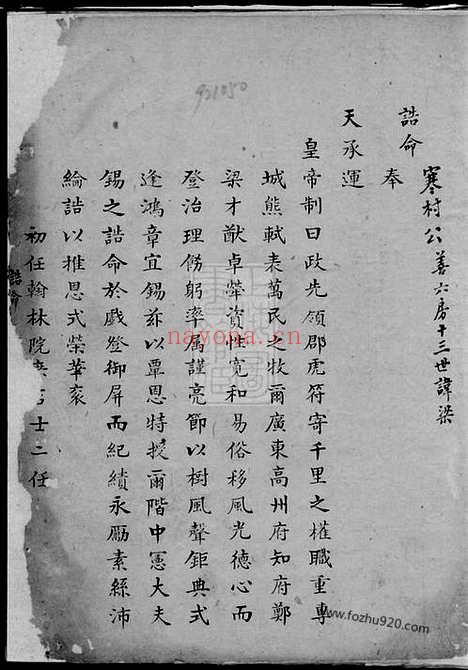 921050
寒村公 善六房十三世諱梁
誥命
奉
天承運
皇帝制曰政先領郡虎符寄千里之權職重專
城熊軾表萬民之牧爾廣東高州府知府鄭
梁才猷卓犖資性寬和易俗移風光德心而
登治理傍躬率属謹亮節以樹風聲鉅典式
逢鴻章宜錫茲以覃恩特授爾階中憲大夫
錫之誥命於戲登御屏而紀績永勵素絲沛
綸誥以推恩式榮華袞
初任翰林院庶吉士二任
誥命
nayona.cn
www.fozhu920.com